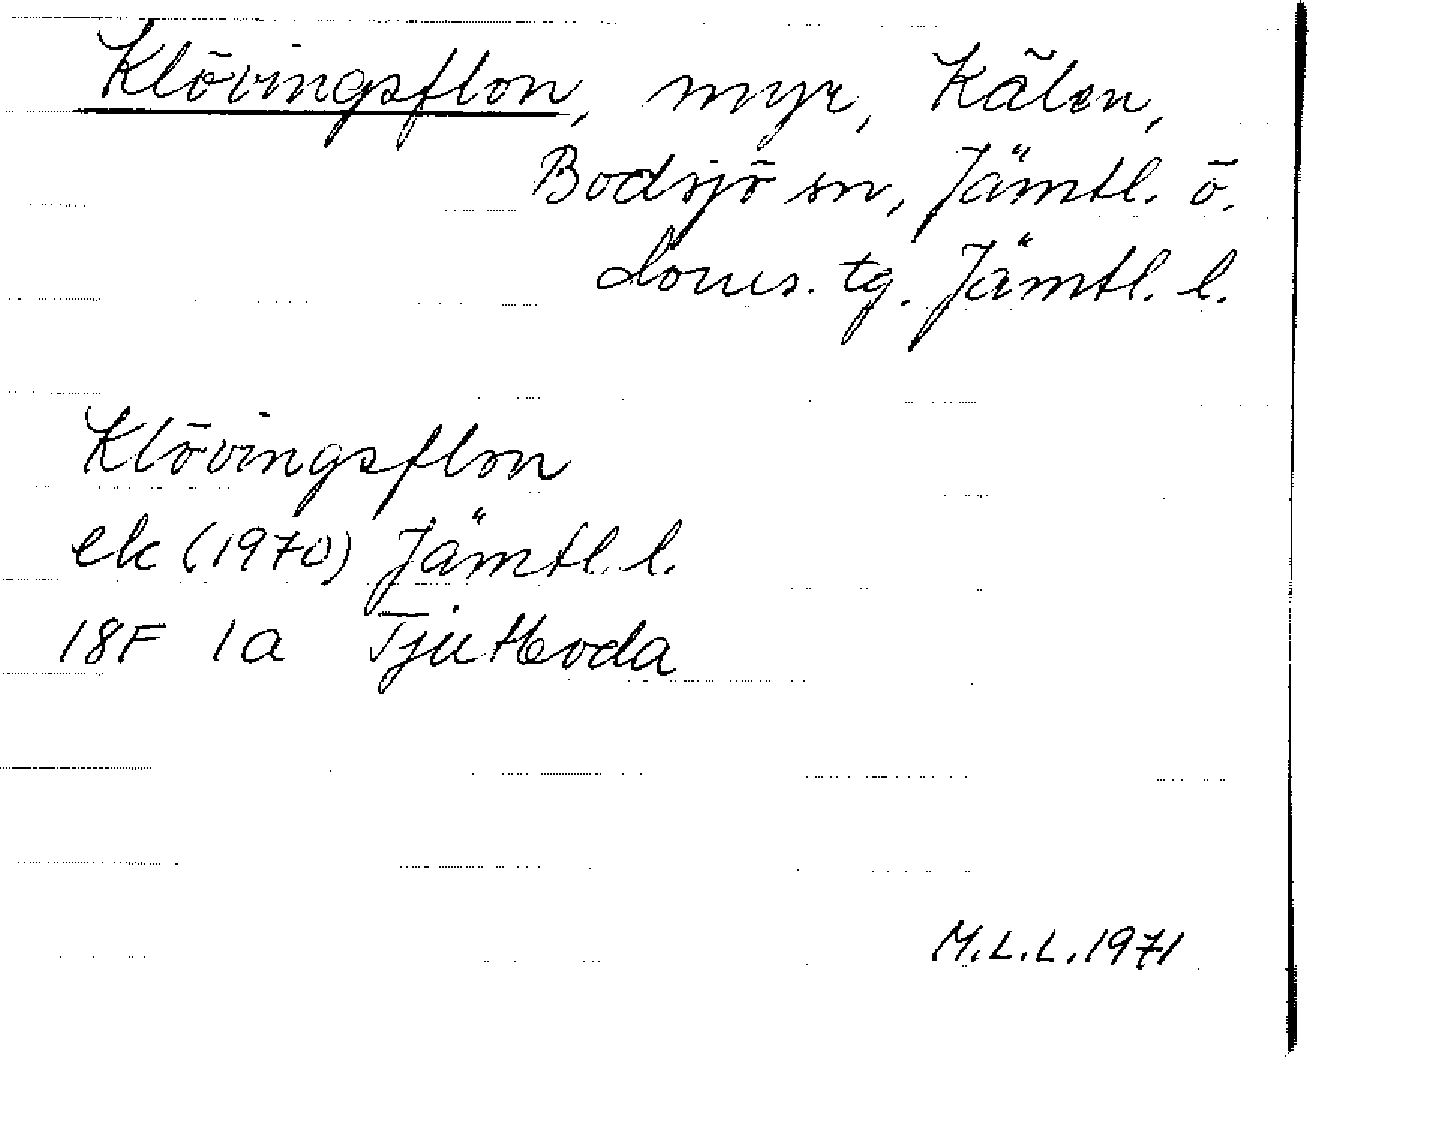 Klövingsflon, myr, Kälen,
Bodsjö sn, Jämtl. ö.
Doms. tg. Jämtl. l.
Klövingsflon
ek (1970) Jämtl. l.
18F 1a Tjuttboda
M.L.L. 1971